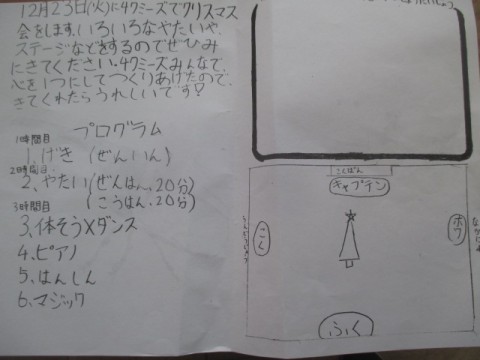 12月23日(火)に4クミーズでクリスマス
会をします。いろいろなやたいや、
ステージなどをするのでぜひみ
にきてください。4クミーズみんなで、
心を1つにしてつくりあげたので、
きてくれたらうれしいです!
プログラム
1時間目
1、げき(ぜんいん)
2時間目
2、やたい(ぜんはん、20分)
(こうはん、20分)
3時間目
3、体そう×ダンス
4、ピアノ
5、はんしん
6、マジック
こくばん
キャプテン
ふく